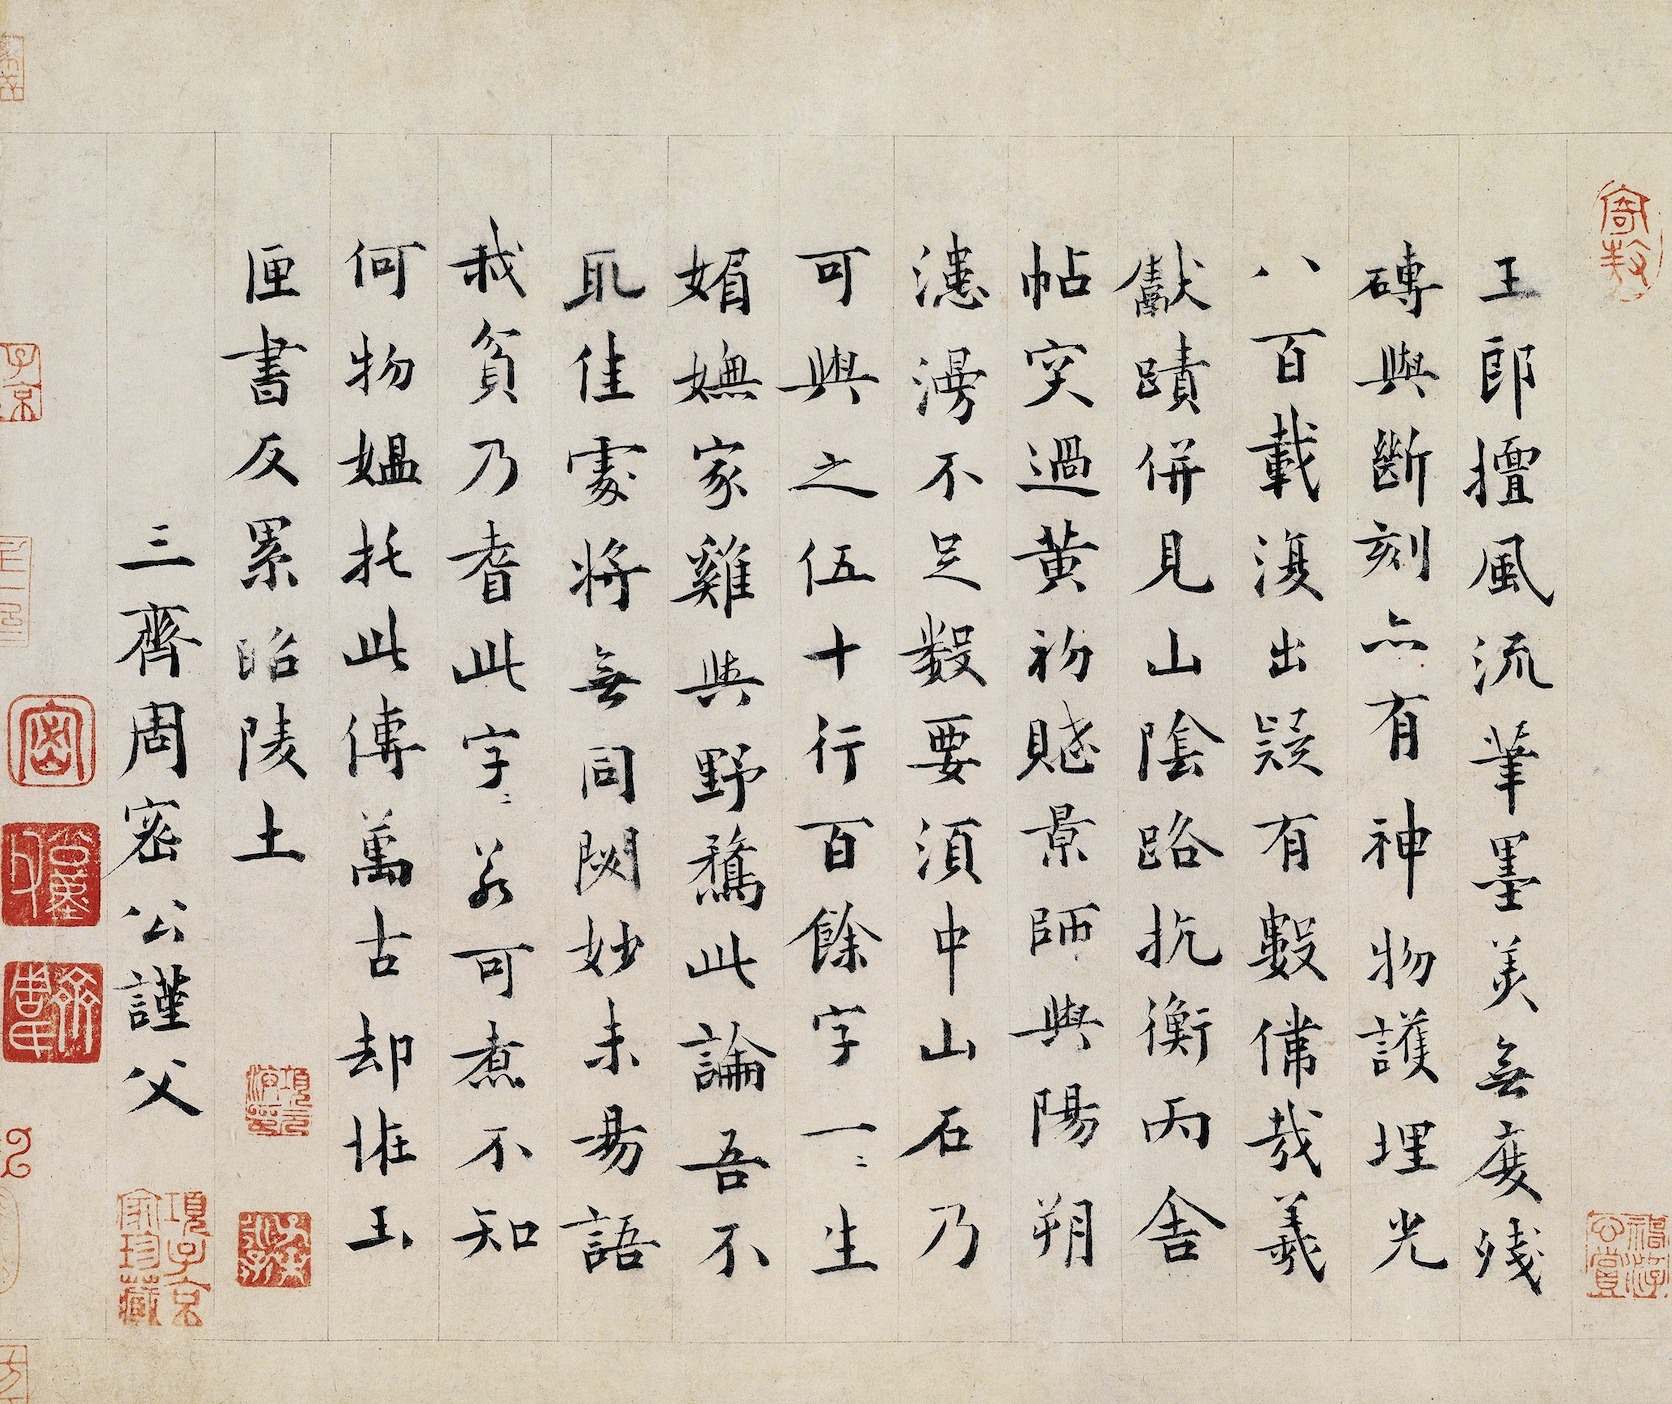 王郎擅風流筆墨美無度殘
磚與斷刻亦有神物護埋光
八百載復出疑有數偉哉羲
獻蹟併見山陰路抗衡丙舍
帖突過黃初賦景師與陽朔
漶漫不足數要須中山石乃
可與之伍十行百餘字一〻生
媚嫵家雞與野鶩此論吾不
取佳處將無同闕妙未易語
我貧乃耆此字〻若可煮不知
何物媼托此傳萬古却恠玉
匣書反累昭陵土
三齊周密公謹父
項子京家珍藏
子京